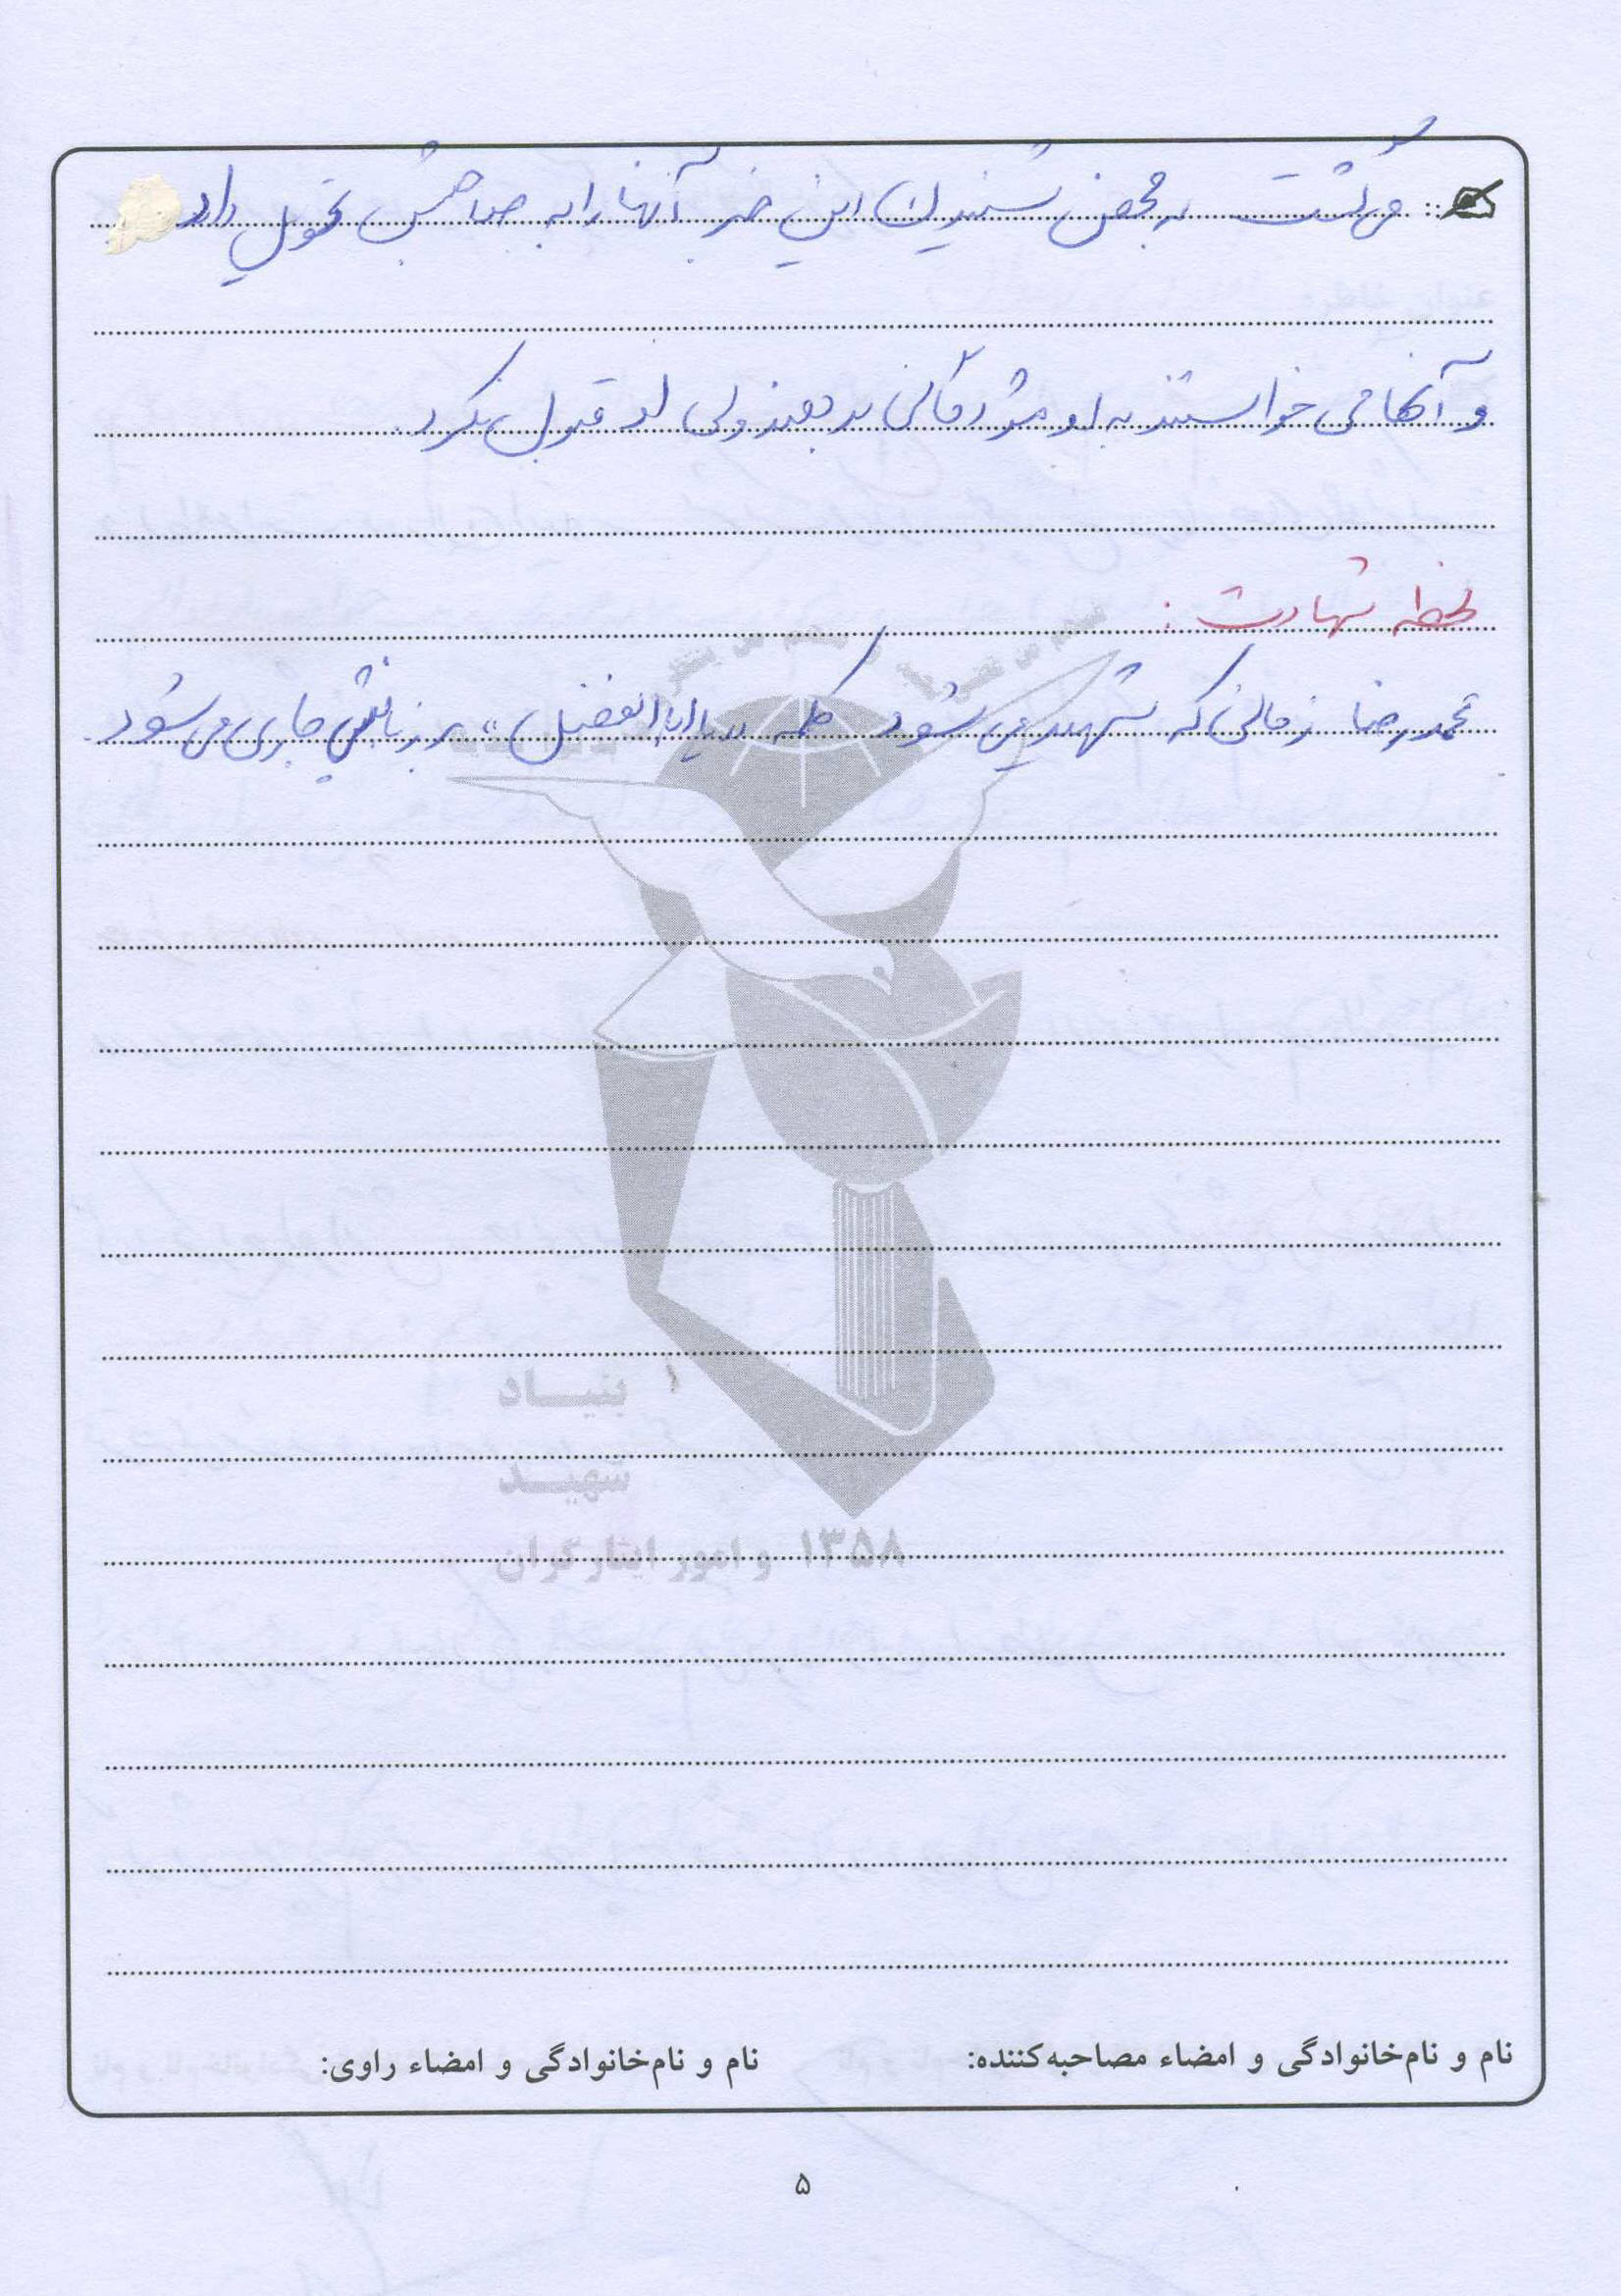 می گشت به محض شنیدن این خبر آنها را به صاحبش تحویل داد
و آنها می خواستند به او مژدگانی بدهند ولی او قبول نکرد.
لحظه شهادت :
محمدرضا زمانی که شهید می شود کلمه «یا اباالفضل» بر زبانش جاری می شود.
بنیاد
شهید
و امور ایثارگران ۱۳۵۸
نام و نام‌خانوادگی و امضاء مصاحبه‌کننده: نام و نام‌خانوادگی و امضاء راوی:
۵